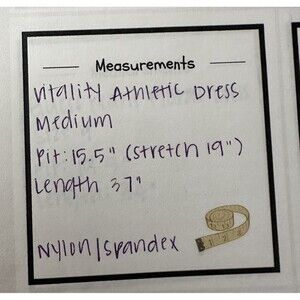 Measurements
Vitality Athletic Dress
Medium
Pit: 15.5" (stretch 19")
Length 37"
Nylon/spandex